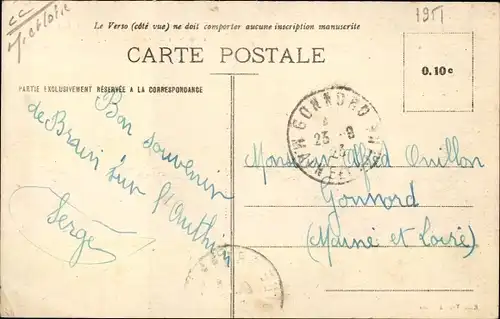 CC
M et Loire
1951
Le Verso (côté vue) ne doit comporter aucune inscription manuscrite
CARTE POSTALE
0.10c
PARTIE EXCLUSIVEMENT RÉSERVÉE A LA CORRESPONDANCE
GONNORD
23 - 9
23
Bon souvenir
de Brain sur
Serge
Monsieur Alfred Onillon
Gonnord
(Maine et Loire)